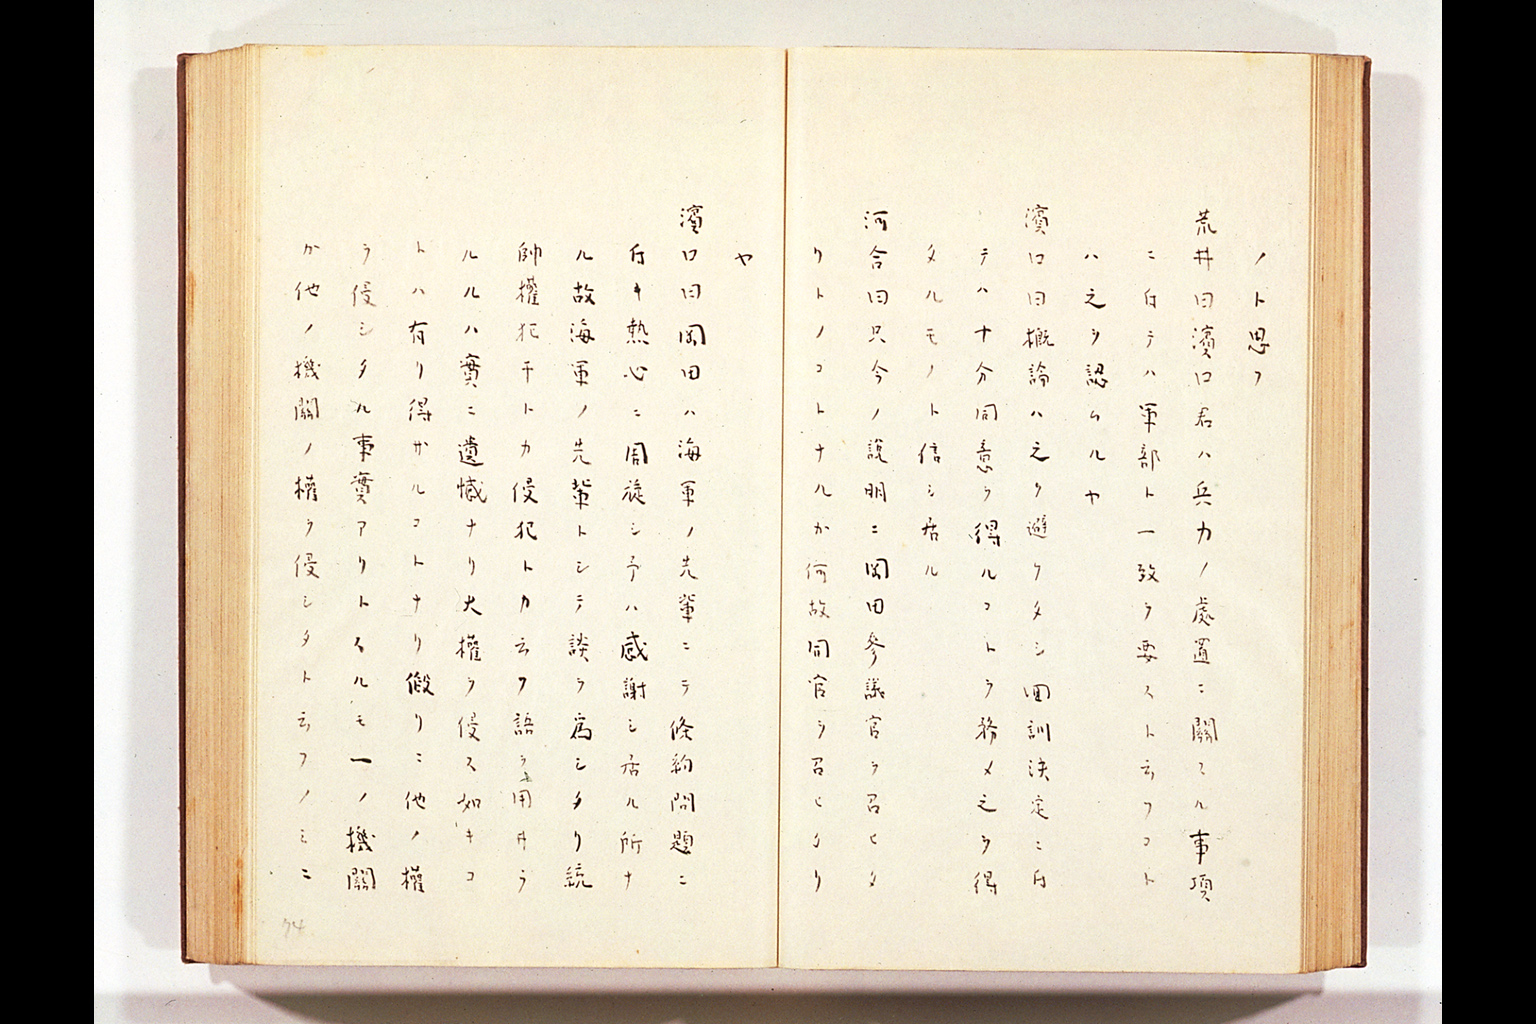 ノト思フ
荒井曰濱口君ハ兵力ノ處置ニ關スル事項
ニ付テハ軍部ト一致ヲ要スト云フコト
ハ之ヲ認ムルヤ
濱口曰概論ハ之ヲ避ケタシ回訓決定ニ付
テハ十分同意ヲ得ルコトヲ務メ之ヲ得
タルモノト信シ居ル
河合曰只今ノ説明ニ岡田參議官ヲ召ヒタ
リトノコトナルカ何故同官ヲ召ヒタリ
ヤ
濱口曰岡田ハ海軍ノ先輩ニテ條約問題ニ
付キ熱心ニ周旋シ予ハ感謝シ居ル所ナ
ル故海軍ノ先輩トシテ談ヲ爲シタリ統
帥權犯干トカ侵犯トカ云フ語ヲ用井ラ
ルルハ實ニ遺憾ナリ大權ヲ侵ス如キコ
トハ有リ得サルコトナリ假リニ他ノ權
ヲ侵シタル事實アリトスルモ一ノ機關
カ他ノ機關ノ權ヲ侵シタト云フノミニ
74